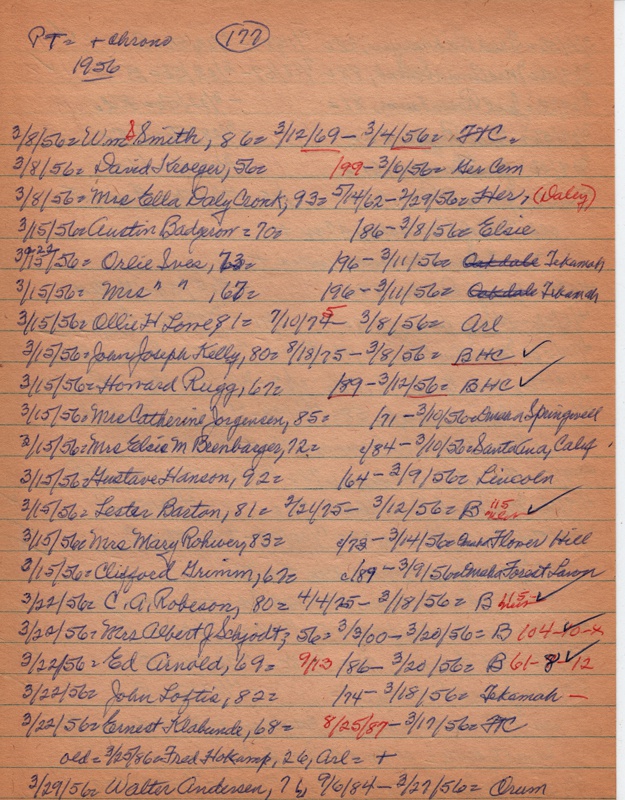 PT= + Chrono (177)
1956
3/8/56= Wm S Smith, 86= 3/12/69 - 3/4/56= FTC=
3/8/56= David Kroeger, 56= /99 - 3/6/56= Ger Cem
3/8/56= Mrs Ella Daly Cronk, 93= 5/14/62 - 2/29/56= Her, (Daley)
3/15/56= Austin Badgerow = 70= /86 - 3/8/56= Elsie
3/22/56= Orlie Ives, 73= /96 - 3/11/56= Oakdale Tekamah
3/15/56= Mrs " ", 67= /96 - 3/11/56= Oakdale Tekamah
3/15/56= Ollie H Lowe, 81= 7/10/75 3/8/56= Arl
3/15/56= John Joseph Kelly, 80= 8/18/75 - 3/8/56= BHC ✓
3/15/56= Howard Rugg, 67= /89 - 3/12/56= BHC ✓
3/15/56= Mrs Catherine Jorgensen, 85= /71 - 3/10/56= Omaha Springwell
3/15/56= Mrs Elsie M Beenbaeger, 72= c/84 - 3/10/56= Santa Ana, Calif.
3/15/56= Gustave Hanson, 92= /64 - 3/9/56= Lincoln
3/15/56= Lester Barton, 81= 2/21/75 - 3/12/56= B 115 ✓
3/15/56= Mrs Mary Rohwer, 83= c/73 - 3/14/56= Omaha Flower Hill
3/15/56= Clifford Grimm, 67= c/89 - 3/9/56= Omaha Forest Lawn
3/22/56= C. A. Robeson, 80= 4/4/75 - 3/18/56= B ✓
3/22/56= Mrs Albert J Schjodt, 56= 3/3/00 - 3/20/56= B 104-10-x
3/22/56= Ed Arnold, 69= 9/13 /86 - 3/20/56= B 61-8-12 ✓
3/22/56= John Loftis, 82= /74 - 3/18/56= Tekamah -
3/22/56= Ernest Klabunde, 68= 8/25/87 - 3/17/56= FTC
old= 3/25/86= Fred Hokamp, 26, Arl= +
3/29/56= Walter Andersen, 9/6/84 - 3/27/56= Orum